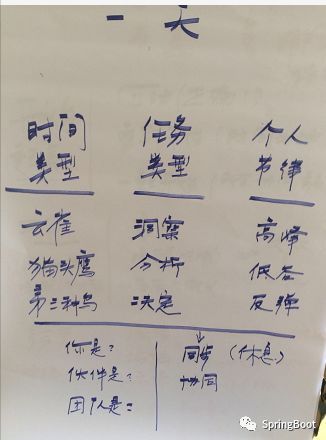 一天
时间 任务 个人
类型 类型 节律
云雀 洞察 高峰
猫头鹰 分析 低谷
第三种鸟 决定 反弹
你是？
伙伴是？
团队是：
同步（休息）
协同
SpringBoot